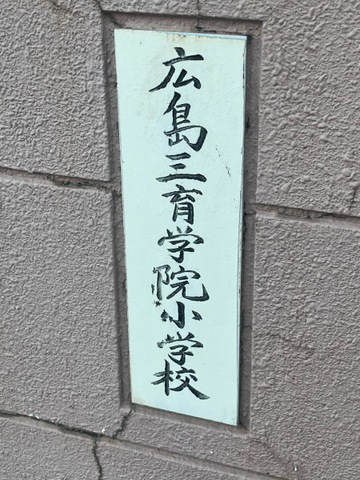 広島三育学院小学校